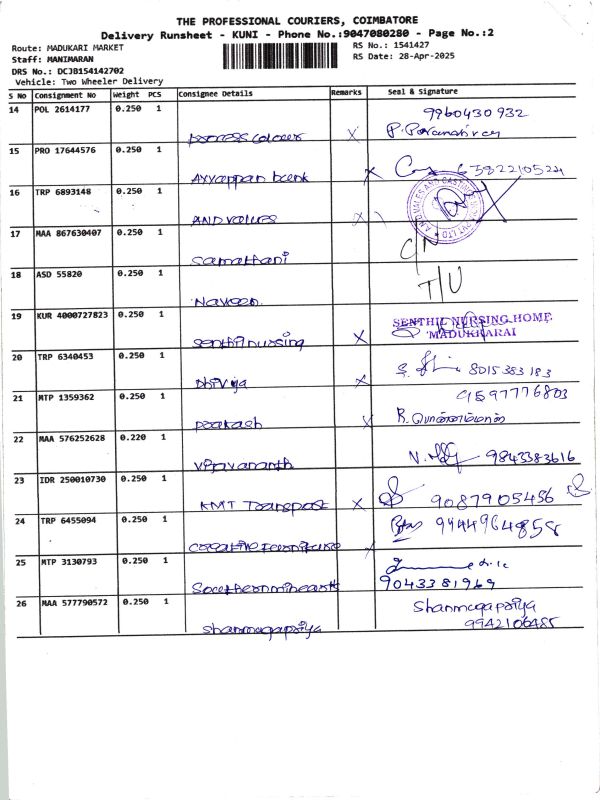 THE PROFESSIONAL COURIERS, COIMBATORE
Delivery Runsheet - KUNI - Phone No.:9047080280 - Page No.:2
Route: MADUKARI MARKET RS No.: 1541427
Staff: MANIMARAN RS Date: 28-Apr-2025
DRS No.: DCJB154142702
Vehicle: Two Wheeler Delivery
S No Consignment No Weight PCS Consignee Details Remarks Seal & Signature
14 POL 2614177 0.250 1 9960430932
X
15 PRO 17644576 0.250 1
Ayyappan bank X
16 TRP 6893148 0.250 1
AND values X
17 MAA 867630407 0.250 1
Samathani
18 ASD 55820 0.250 1 T/U
Naveen
19 KUR 4000727823 0.250 1 SENTHIL NURSING HOME
MADUKKARAI
Senthil nursing X
20 TRP 6340453 0.250 1 8015383183
Dhivya X
21 MTP 1359362 0.250 1 9597776803
Prakash X R.
22 MAA 576252628 0.220 1
Vijayananth 9843383616
23 IDR 250010730 0.250 1
KMT Transport X 9087905456
24 TRP 6455094 0.250 1 9444964858
Creative Furniture
25 MTP 3130793 0.250 1
9043381969
26 MAA 577790572 0.250 1 Shanmugapriya
Shanmugapriya 9942106485